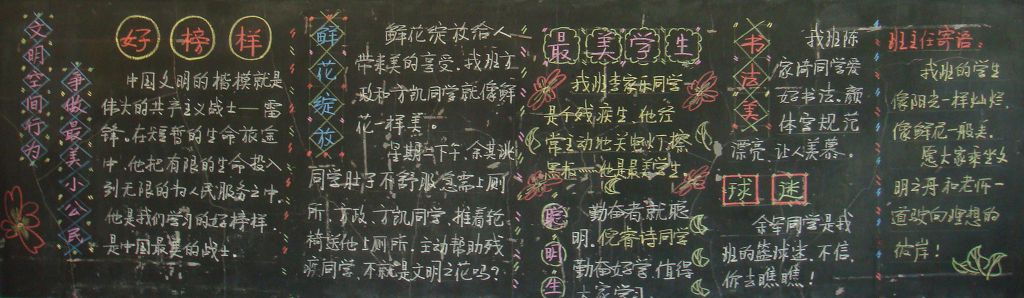 文明空间行为
争做最美小公民
好榜样
中国文明的楷模就是
伟大的共产主义战士——雷
锋。在短暂的生命旅途
中，他把有限的生命投入
到无限的为人民服务之中。
他是我们学习的好榜样，
是中国最美的战士。
鲜花绽放
鲜花绽放给人
带来美的享受。我班丁
政和万凯同学就像鲜
花一样美。
星期二下午，余其洲
同学肚子不舒服急需上厕
所，丁政、万凯同学，推着轮
椅送他上厕所，主动帮助残
疾同学，不就是文明之花吗？
最美学生
我班李家乐同学
是个残疾生，他经
常主动地关电灯，擦
黑板——他是最美学生。
聪明生
勤奋者就聪
明，倪睿诗同学
勤奋好学，值得
大家学习。
书法美
我班陈
家琦同学爱
好书法，颜
体字规范
漂亮，让人羡慕。
球迷
余军同学是我
班的篮球迷，不信，
你去瞧瞧！
班主任寄语：
我班的学生
像阳光一样灿烂，
像鲜花一般美。
愿大家乘坐文
明之舟和老师一
道驶向理想的
彼岸！